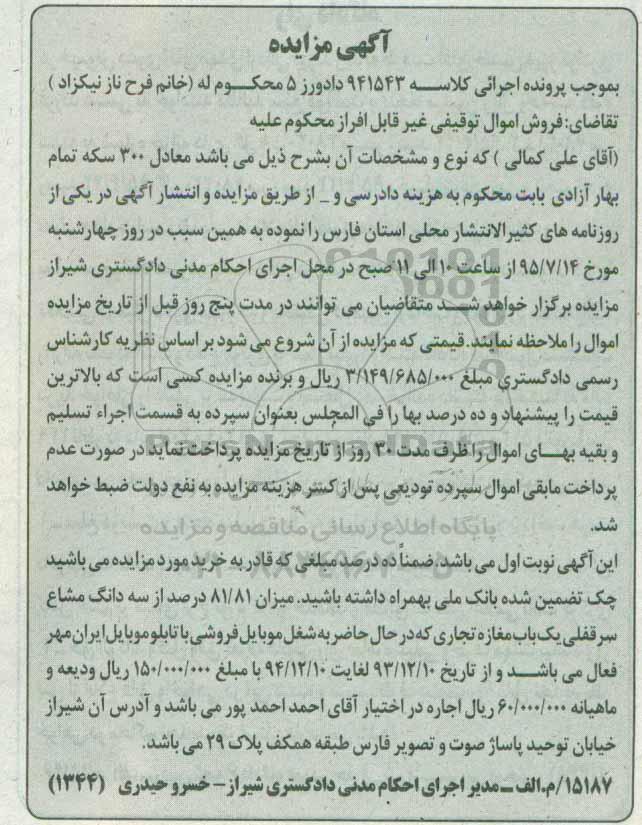 آگهی مزایده
بموجب پرونده اجرائی کلاسه ۹۴۱۵۴۳ دادورز ۵ محکوم له (خانم فرح ناز نیکزاد )
تقاضای: فروش اموال توقیفی غیر قابل افراز محکوم علیه
(آقای علی کمالی ) که نوع و مشخصات آن بشرح ذیل می باشد معادل ۳۰۰ سکه تمام
بهار آزادی بابت محکوم به هزینه دادرسی و _ از طریق مزایده و انتشار آگهی در یکی از
روزنامه های کثیرالانتشار محلی استان فارس را نموده به همین سبب در روز چهارشنبه
مورخ ۹۵/۷/۱۴ از ساعت ۱۰ الی ۱۱ صبح در محل اجرای احکام مدنی دادگستری شیراز
مزایده برگزار خواهد شد متقاضیان می توانند در مدت پنج روز قبل از تاریخ مزایده
اموال را ملاحظه نمایند. قیمتی که مزایده از آن شروع می شود بر اساس نظریه کارشناس
رسمی دادگستری مبلغ ۳/۱۴۹/۶۸۵/۰۰۰ ریال و برنده مزایده کسی است که بالاترین
قیمت را پیشنهاد و ده درصد بها را فی المجلس بعنوان سپرده به قسمت اجراء تسلیم
و بقیه بهای اموال را ظرف مدت ۳۰ روز از تاریخ مزایده پرداخت نماید در صورت عدم
پرداخت مابقی اموال سپرده تودیعی پس از کسر هزینه مزایده به نفع دولت ضبط خواهد
شد.
این آگهی نوبت اول می باشد. ضمناً ده درصد مبلغی که قادر به خرید مورد مزایده می باشید
چک تضمین شده بانک ملی بهمراه داشته باشید. میزان ۸۱/۸۱ درصد از سه دانگ مشاع
سرقفلی یک باب مغازه تجاری که در حال حاضر به شغل موبایل فروشی با تابلو موبایل ایران مهر
فعال می باشد و از تاریخ ۹۳/۱۲/۱۰ لغایت ۹۴/۱۲/۱۰ با مبلغ ۱۵۰/۰۰۰/۰۰۰ ریال ودیعه و
ماهیانه ۶۰/۰۰۰/۰۰۰ ریال اجاره در اختیار آقای احمد احمد پور می باشد و آدرس آن شیراز
خیابان توحید پاساژ صوت و تصویر فارس طبقه همکف پلاک ۲۹ می باشد.
۱۵۱۸۷/م.الف ـ مدیر اجرای احکام مدنی دادگستری شیراز – خسرو حیدری (۱۳۴۴)
ParsNamadData
پایگاه اطلاع رسانی مناقصه و مزایده